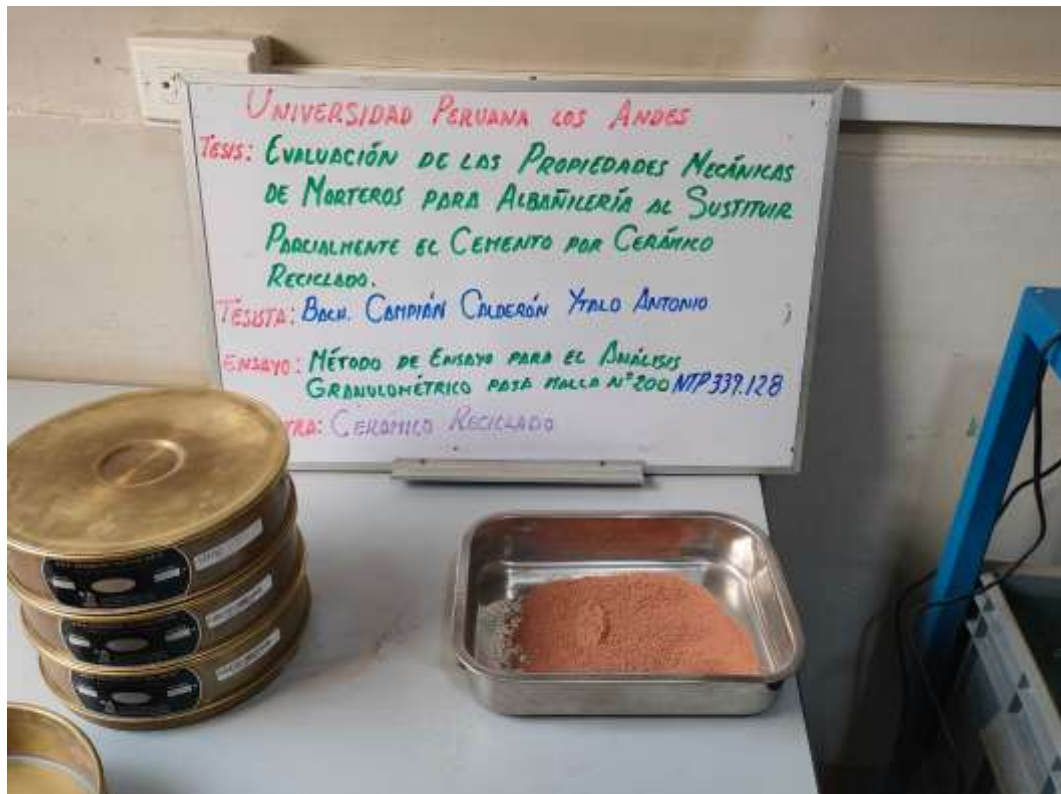 UNIVERSIDAD PERUANA LOS ANDES
TESIS: EVALUACIÓN DE LAS PROPIEDADES MECÁNICAS
DE MORTEROS PARA ALBAÑILERÍA AL SUSTITUIR
PARCIALMENTE EL CEMENTO POR CERÁMICO
RECICLADO.
TESISTA: BACH. CAMPIÁN CALDERÓN YTALO ANTONIO
ENSAYO: MÉTODO DE ENSAYO PARA EL ANÁLISIS
GRANULOMÉTRICO PASA MALLA N°200 NTP 339.128
TRA: CERÁMICO RECICLADO